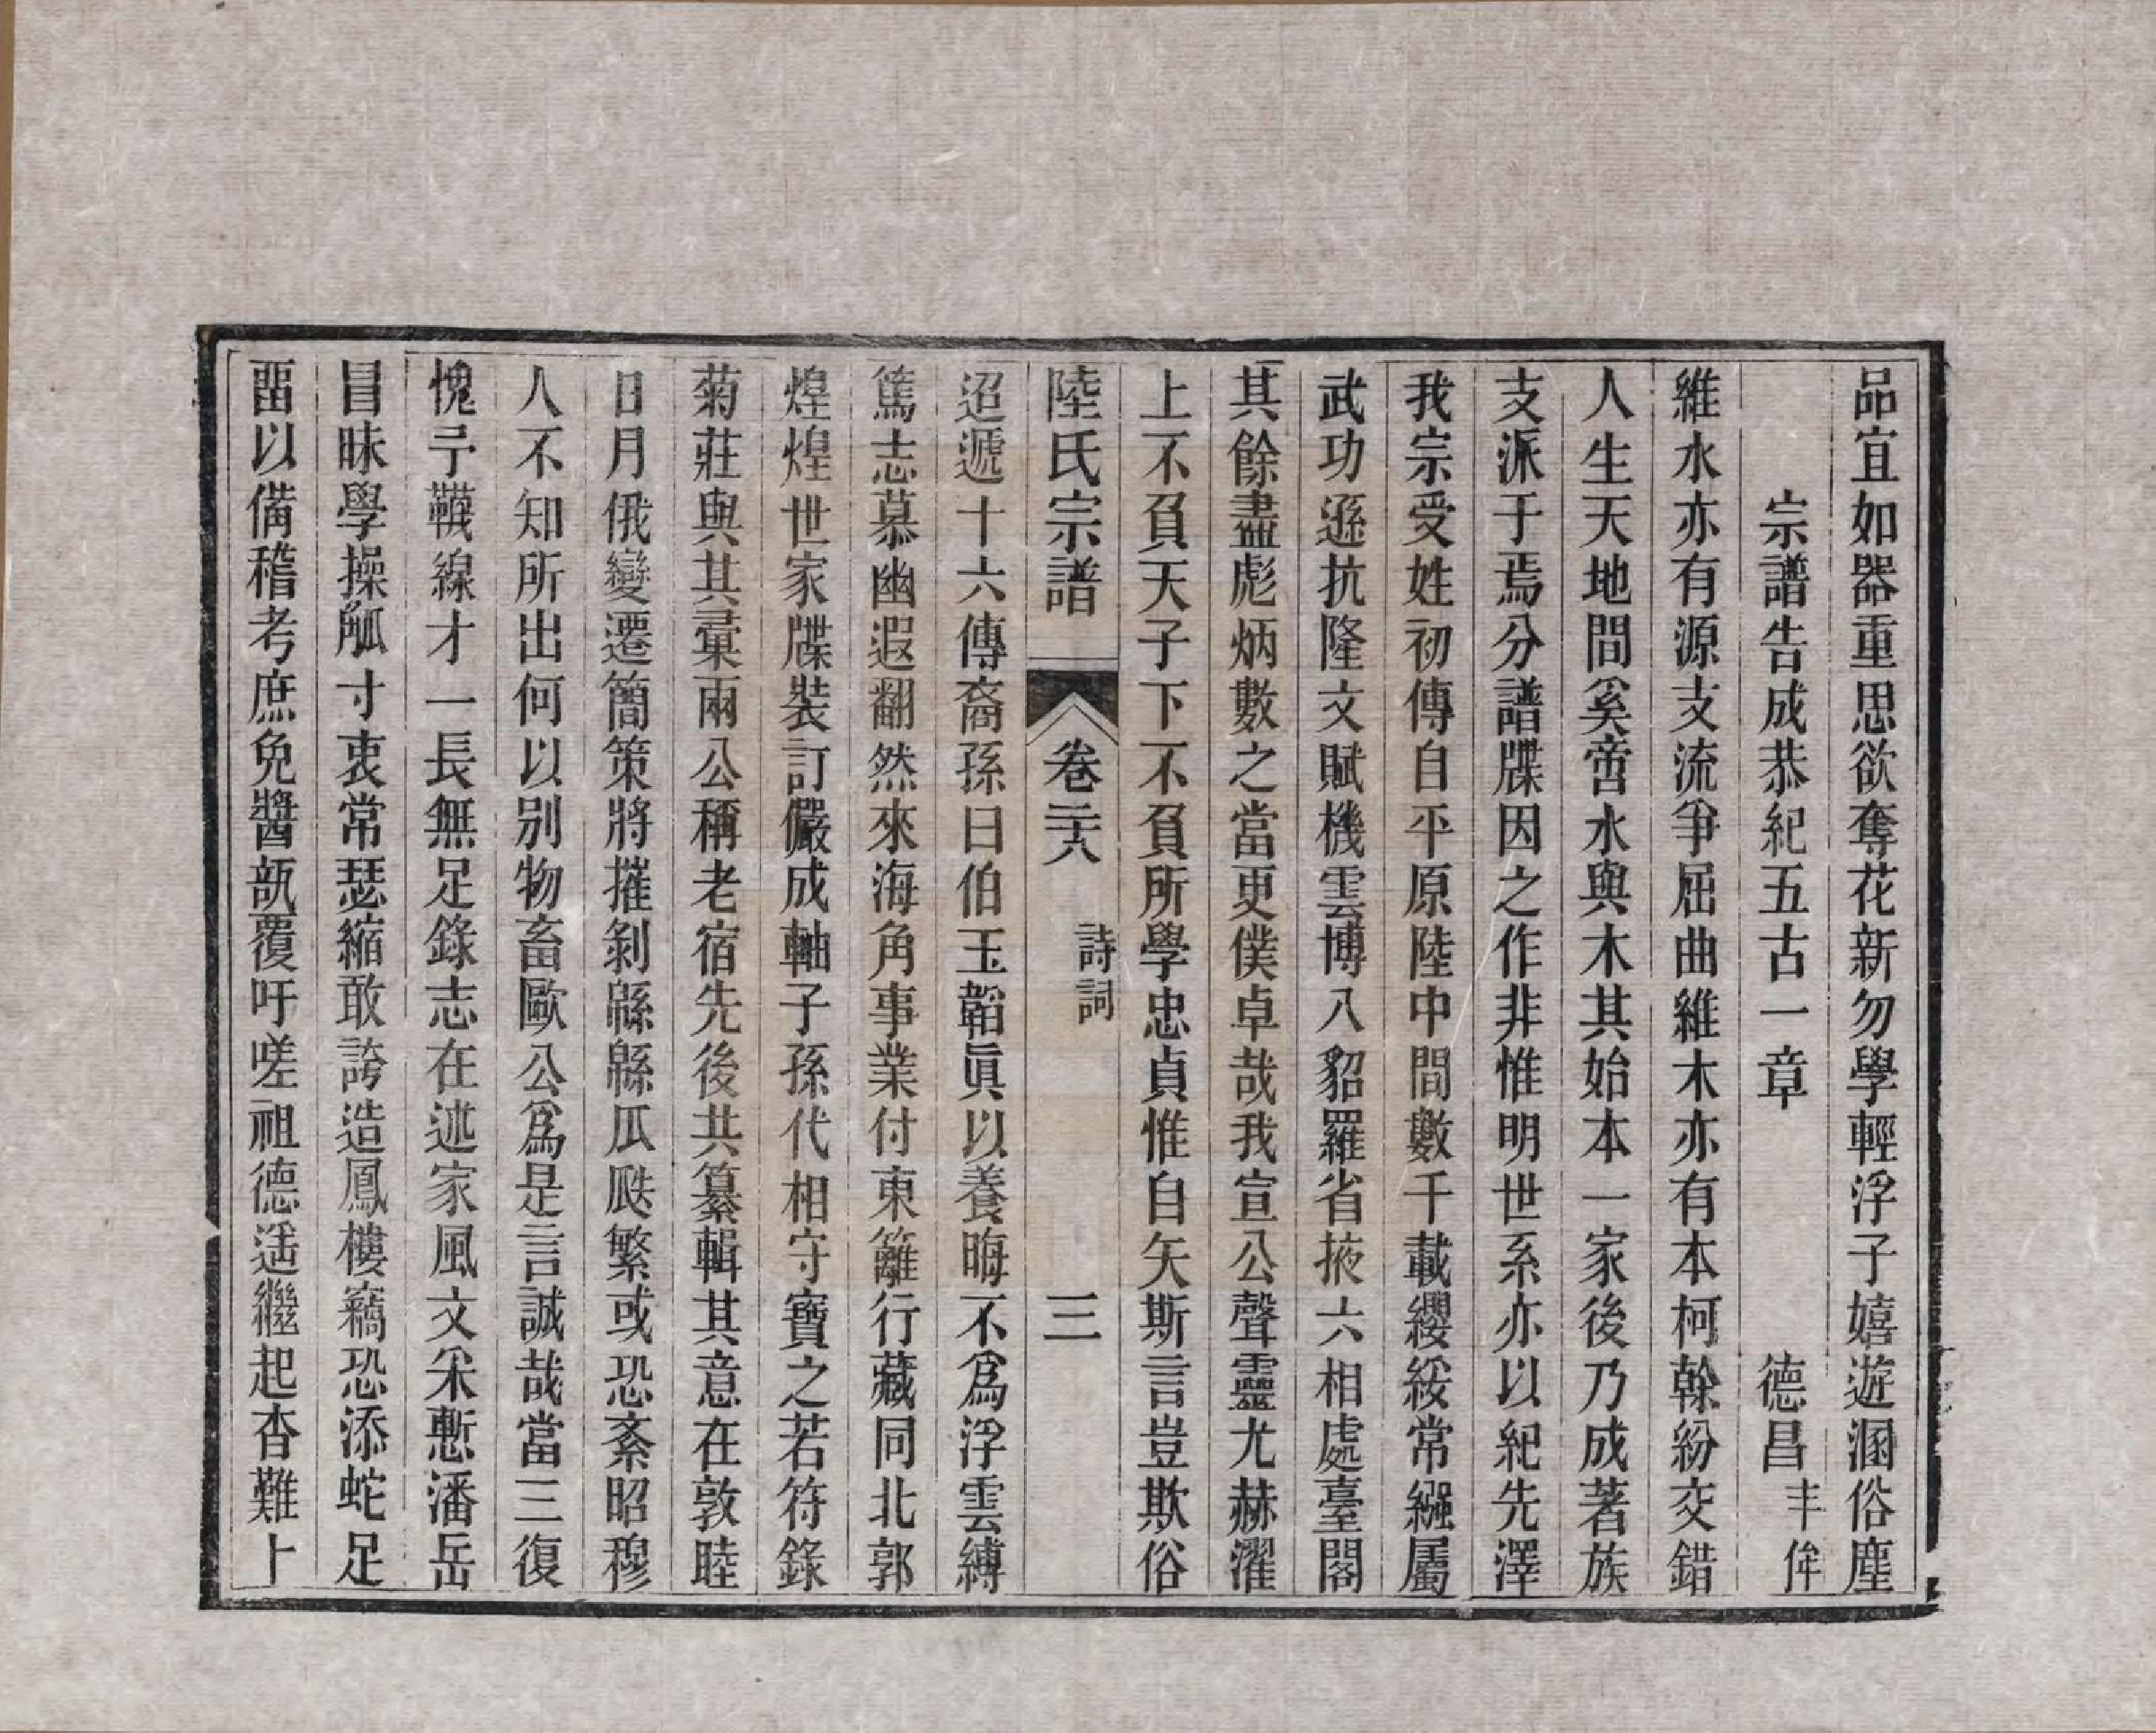 品宜如器重思欲奪花新勿學輕浮子嬉遊溷俗塵
宗譜告成恭紀五古一章 德昌 丰侔
維水亦有源支流爭屈曲維木亦有本柯榦紛交錯
人生天地間奚啻水與木其始本一家後乃成著族
支派于焉分譜牒因之作非惟明世系亦以紀先澤
我宗受姓初傳自平原陸中間數千載纓綏常繈屬
武功遜抗隆文賦機雲博八貂羅省掖六相處臺閣
其餘盡彪炳數之當更僕卓哉我宣公聲靈尤赫濯
上不負天子下不負所學忠貞惟自矢斯言豈欺俗
陸氏宗譜 卷二十八 詩詞 三
迢遞十六傳裔孫曰伯玉韜眞以養晦不爲浮雲縛
篤志慕幽遐翻然來海角事業付東籬行藏同北郭
煌煌世家牒裝訂儼成軸子孫代相守寶之若符錄
菊莊與其彙兩公稱老宿先後共纂輯其意在敦睦
日月俄變遷簡策將摧剝緜緜瓜瓞繁或恐紊昭穆
人不知所出何以別物畜歐公爲是言誠哉當三復
愧予韈線才一長無足錄志在述家風文采慙潘岳
冒昧學操觚寸衷常瑟縮敢誇造鳳樓竊恐添蛇足
畱以備稽考庶免醬瓿覆吁嗟祖德遥繼起杳難卜